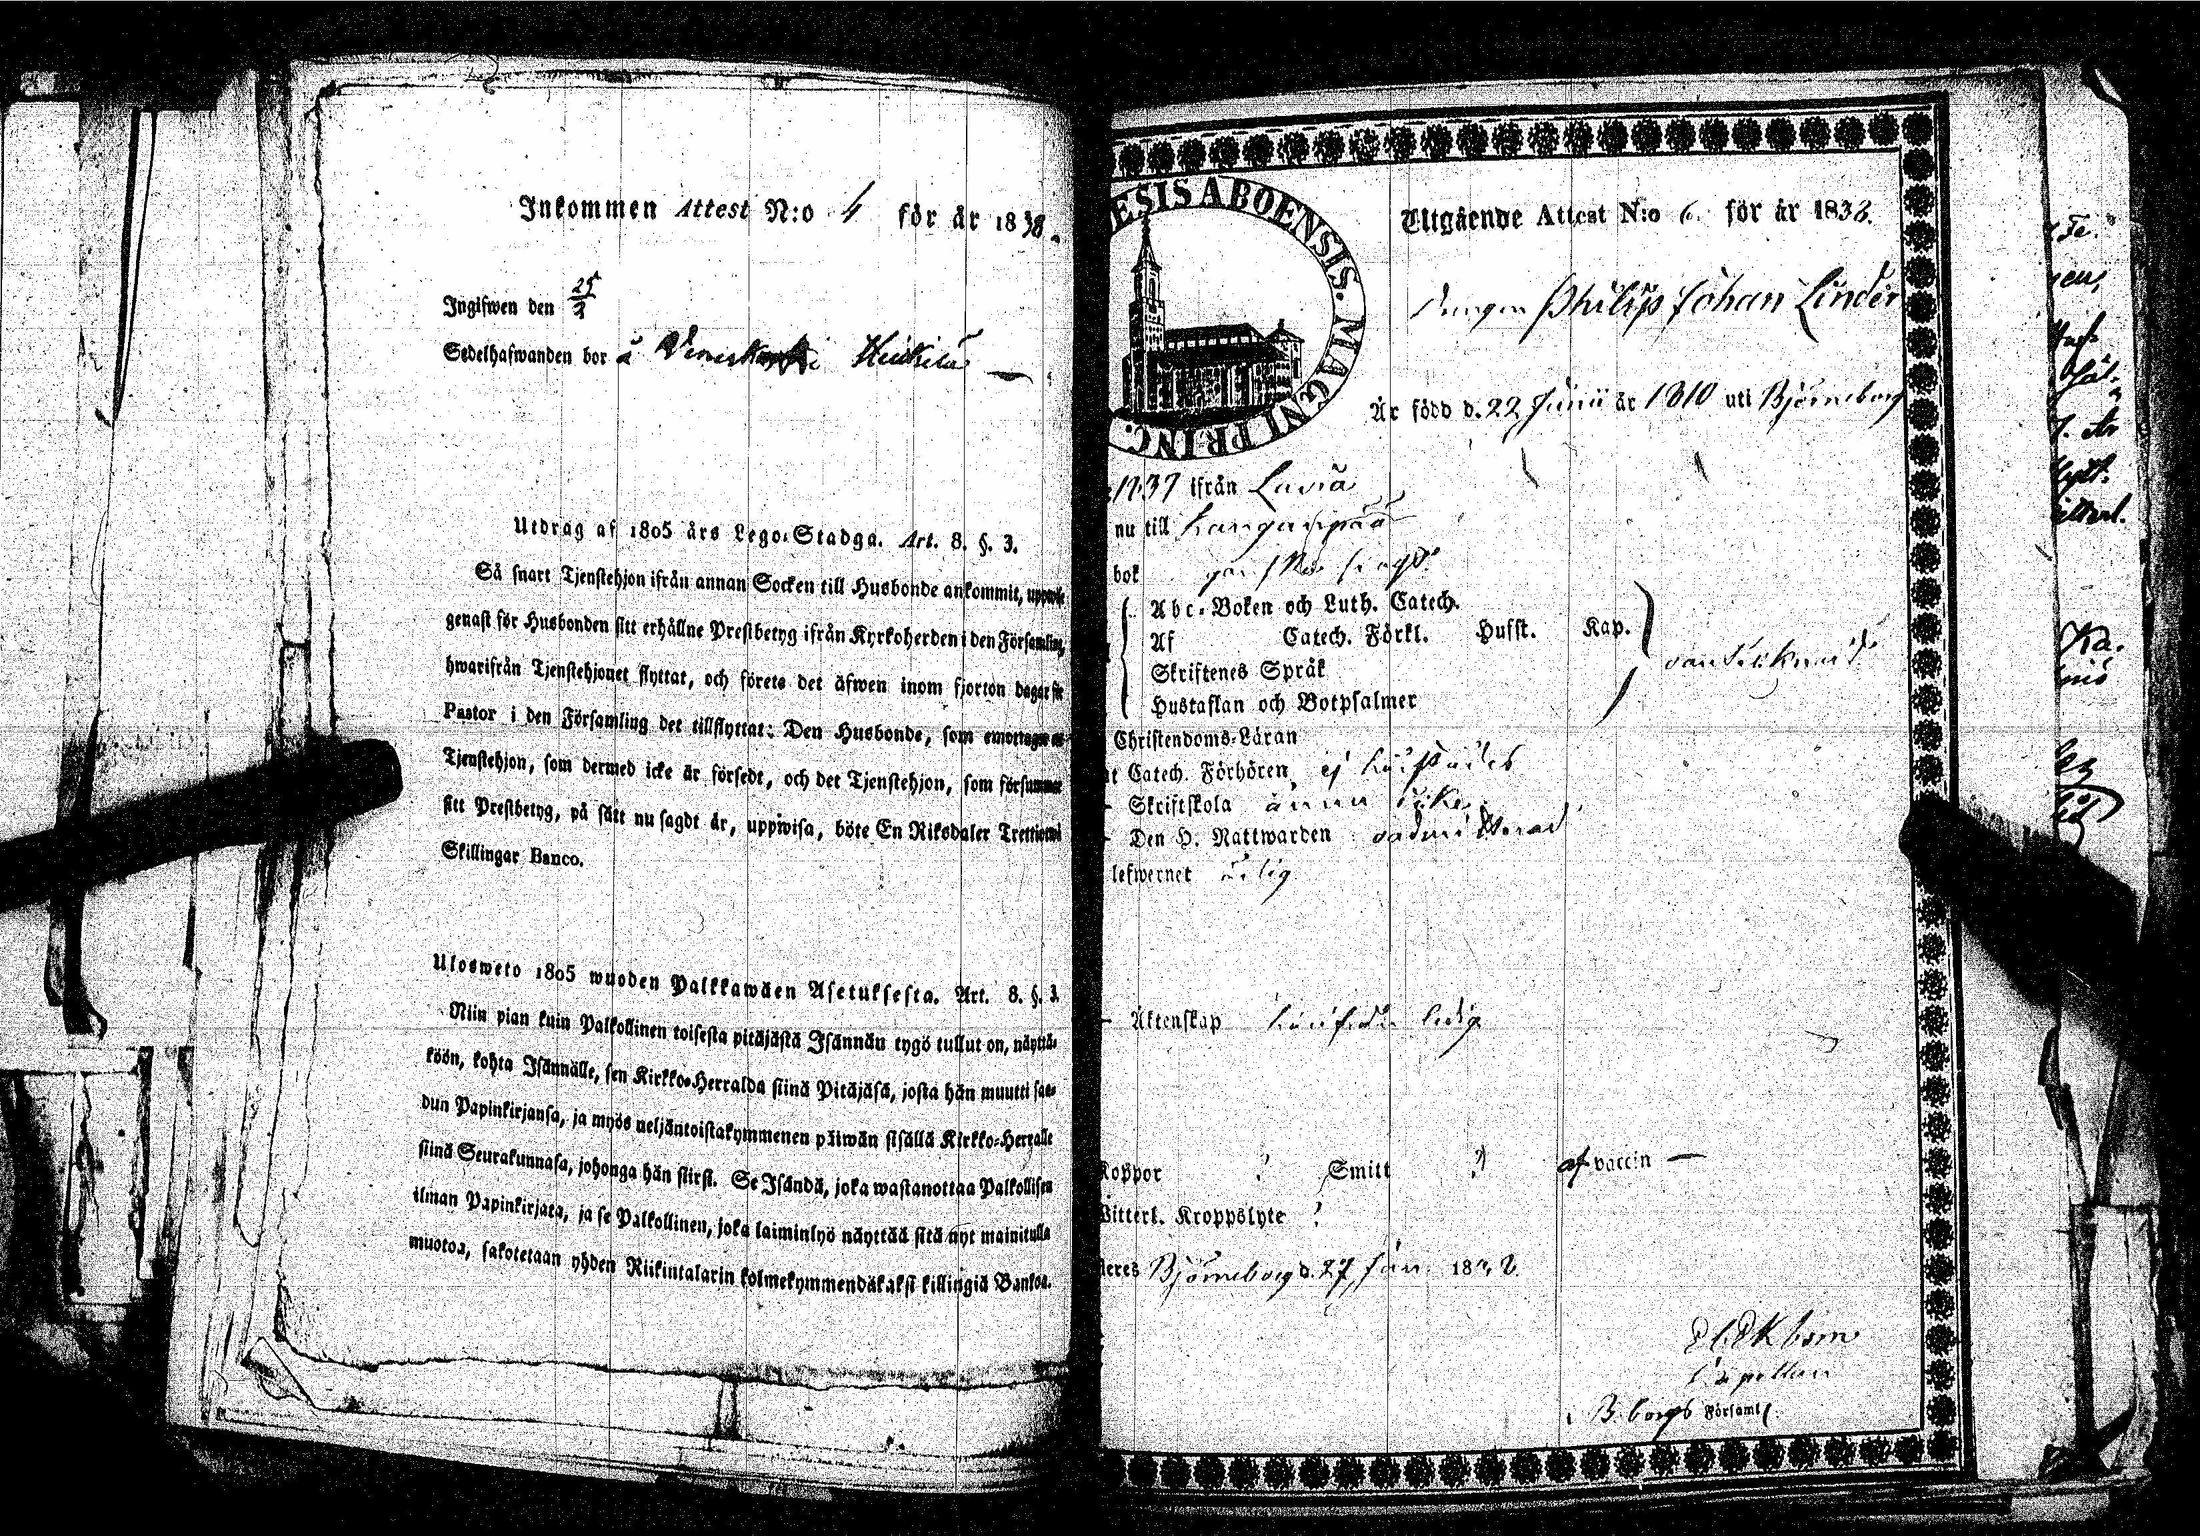 Inkommen Attest N:o 4 för år 1838.
Ingifwen den 25/3
Sedelhafwanden bor å Heikilä
Utdrag af 1805 års Lego-Stadga. Art. 8. §. 3.
Så snart Tjenstehjon ifrån annan Socken till Husbonde ankommit, uppwise
genast för Husbonden sitt erhållne Prestbetyg ifrån Kyrkoherden i den Församling,
hwarifrån Tjenstehjonet flyttat, och förete det äfwen inom fjorton dagar för
Pastor i den Församling det tillflyttat: Den Husbonde, som emottager et
Tjenstehjon, som dermed icke är försedt, och det Tjenstehjon, som försummar
sitt Prestbetyg, på sätt nu sagdt är, uppwisa, böte En Riksdaler Trettiotwå
Skillingar Banco.
Ulosweto 1805 wuoden Palkkawäen Asetuksesta. Art. 8. §. 3.
Niin pian kuin Palkollinen toisesta pitäjästä Isännän tygö tullut on, näyttä-
köön, kohta Isännälle, sen Kirkko-Herralda siinä Pitäjäsä, josta hän muutti saa-
dun Papinkirjansa, ja myös neljäntoistakymmenen päiwän sisällä Kirkko-Herralle
siinä Seurakunnasa, johonga hän siirst. Se Isändä, joka wastanottaa Palkollisen
ilman Papinkirjata, ja se Palkollinen, joka laiminlyö näyttää sitä nyt mainitulla
muotoa, sakotetaan yhden Riikintalarin kolmekymmendäkaksi killingiä Bankoa.
ESIS ABOENSIS. MAGNI PRINC.
Utgående Attest N:o 6. för år 1838.
Drengen Philip Johan Linder
Är född d. 22 Junii år 1810 uti Björneborg
1837 ifrån Lavia
nu till Kangasipää
bok
Abc-Boken och Luth. Catech.
Af Catech. Förkl. Hufst. Kap.
Skriftenes Språk
Hustaflan och Botpsalmer
Christendoms-Läran
Catech. Förhören ej
Skriftskola ännu
Den H. Nattwarden oadmitterad
lefwernet
Äktenskap ledig
Koppor ? Smitt ? af vaccin —
Witterl. Kroppslyte ?
Björneborg d. 27 Jan. 1838.
B:borgs Församl.